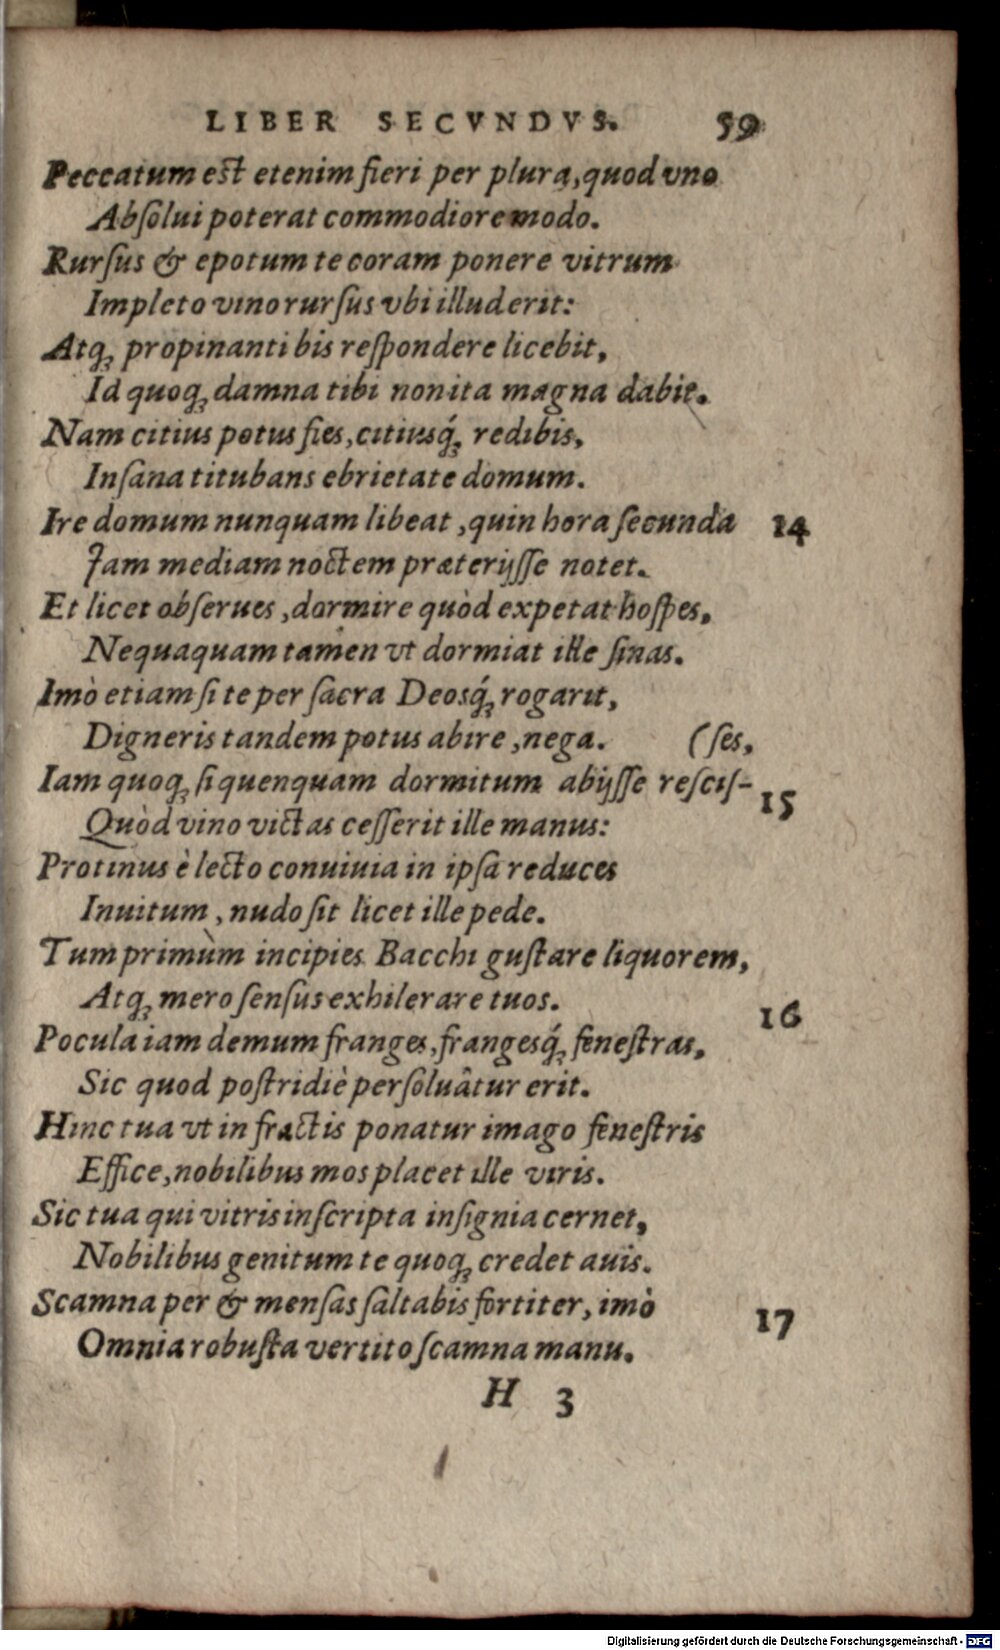 LIBER SECVNDVS. 59
Peccatum est etenim fieri per plura, quod vno
Absolui poterat commodiore modo.
Rursus & epotum te coram ponere vitrum
Impleto vino rursus vbi illud erit:
Atq; propinanti bis respondere licebit,
Id quoq; damna tibi non ita magna dabit.
Nam citius potus fies, citiusq́; redibis,
Insana titubans ebrietate domum.
Ire domum nunquam libeat, quin hora secunda 14
Jam mediam noctem præterijsse notet.
Et licet obserues, dormire quòd expetat hospes,
Nequaquam tamen vt dormiat ille sinas.
Imò etiam si te per sacra Deosq́; rogarit,
Digneris tandem potus abire, nega. (ses,
Iam quoq; si quenquam dormitum abijsse rescis- 15
Quòd vino victas cesserit ille manus:
Protinus è lecto conuiuia in ipsa reduces
Inuitum, nudo sit licet ille pede.
Tum primùm incipies Bacchi gustare liquorem,
Atq; mero sensus exhilerare tuos. 16
Pocula iam demum franges, frangesq́; fenestras,
Sic quod postridiè persoluâtur erit.
Hinc tua vt in fractis ponatur imago fenestris
Effice, nobilibus mos placet ille viris.
Sic tua qui vitris inscripta insignia cernet,
Nobilibus genitum te quoq; credet auis.
Scamna per & mensas saltabis fortiter, imò 17
Omnia robusta vertito scamna manu.
H 3
Digitalisierung gefördert durch die Deutsche Forschungsgemeinschaft - DFG